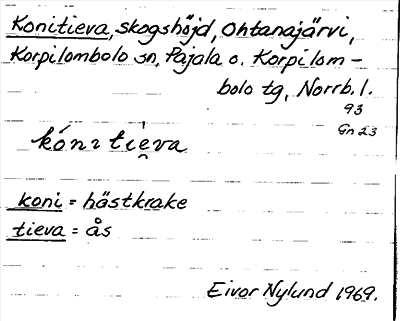 Konitieva, skogshöjd, Ohtanajärvi,
Korpilombolo sn, Pajala o. Korpilom-
bolo tg, Norrb. l.
93
Gn 23
kónɪ tìe̯va
koni = hästkrake
tieva = ås
Eivor Nylund 1969.